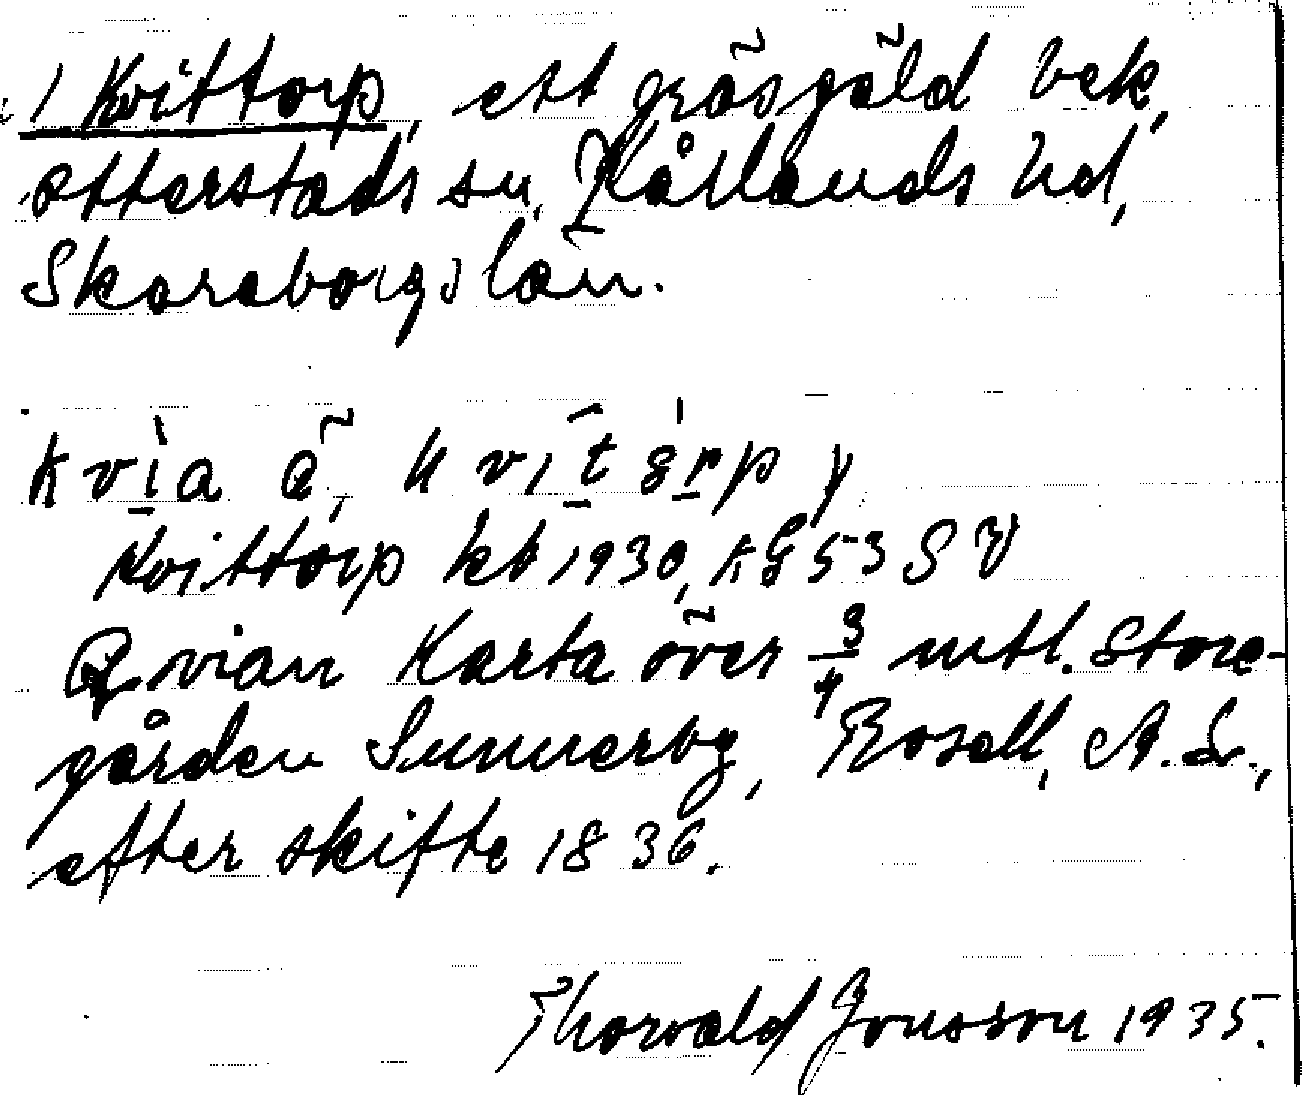 1 Kvittorp, ett gräsgäld bek,
Otterstads sn, Kållands hd,
Skaraborgs län.
kvia ä, kvitọrp y
Kvittorp kb 1930, KG 53 SV
Qvian Karta över 3/4 mtl. Store-
gården Sunnerby, Rosell, A.L.,
efter skifte 1836.
Thorvald Jonsson 1935.